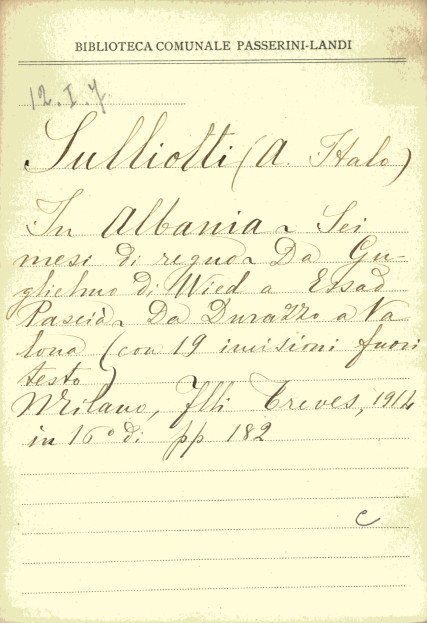 BIBLIOTECA COMUNALE PASSERINI-LANDI
12. I. 7
Sulliotti (A. Italo)
In Albania ~ Sei
mesi di regno ~ Da Gu-
glielmo di Wied a Essad
Pascià ~ Da Durazzo a Va
lona (con 19 incisioni fuori
testo)
Milano, Flli Treves, 1914
in 16° di pp 182
C